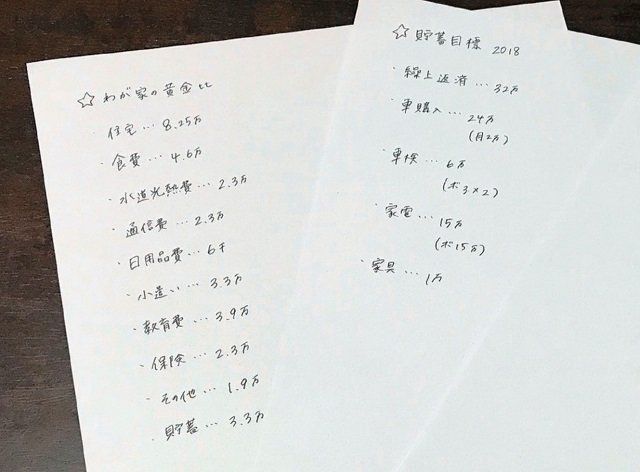 ☆ わが家の黄金比
・住宅… 8.25万
・食費… 4.6万
・水道光熱費… 2.3万
・通信費… 2.3万
・日用品費… 6千
・小遣い… 3.3万
・教育費… 3.9万
・保険… 2.3万
・その他… 1.9万
・貯蓄… 3.3万
☆ 貯蓄目標 2018
・繰上返済… 32万
・車購入… 24万
(月2万)
・車検… 6万
(ボ3×2)
・家電… 15万
(ボ15万)
・家具… 1万